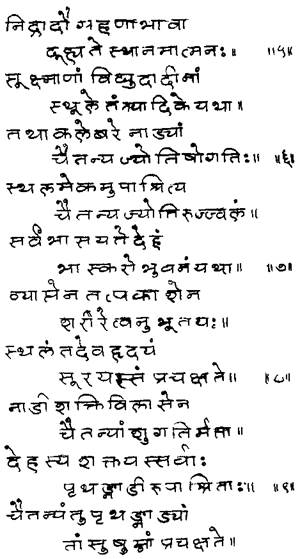 निद्रादौ ग्रहणाभावा
दृश्यते स्थानमात्मनः॥ ॥५॥
सूक्ष्माणां विद्युदादीनां
स्थूले तंत्र्यादिके यथा॥
तथा कलेबरे नाड्यां
चैतन्यज्योतिषोगतिः॥ ॥६॥
स्थलमेकमुपाश्रित्य
चैतन्यज्योतिरुज्ज्वलं॥
सर्वं भासयते देहं
भास्करो भुवनं यथा॥ ॥७॥
व्याप्तेन तत्प्रकाशेन
शरीरेत्वनुभूतयः॥
स्थलं तदेव हृदयं
सूरयस्संप्रचक्षते॥ ॥८॥
नाडीशक्तिविलासेन
चैतन्यांशुगतिर्मता॥
देहस्य शक्तयस्सर्वाः
पृथङ्नाडीरुपाश्रिताः॥ ॥९॥
चैतन्यंतु पृथङ्नाड्यां
तां सुषुम्नां प्रचक्षते॥